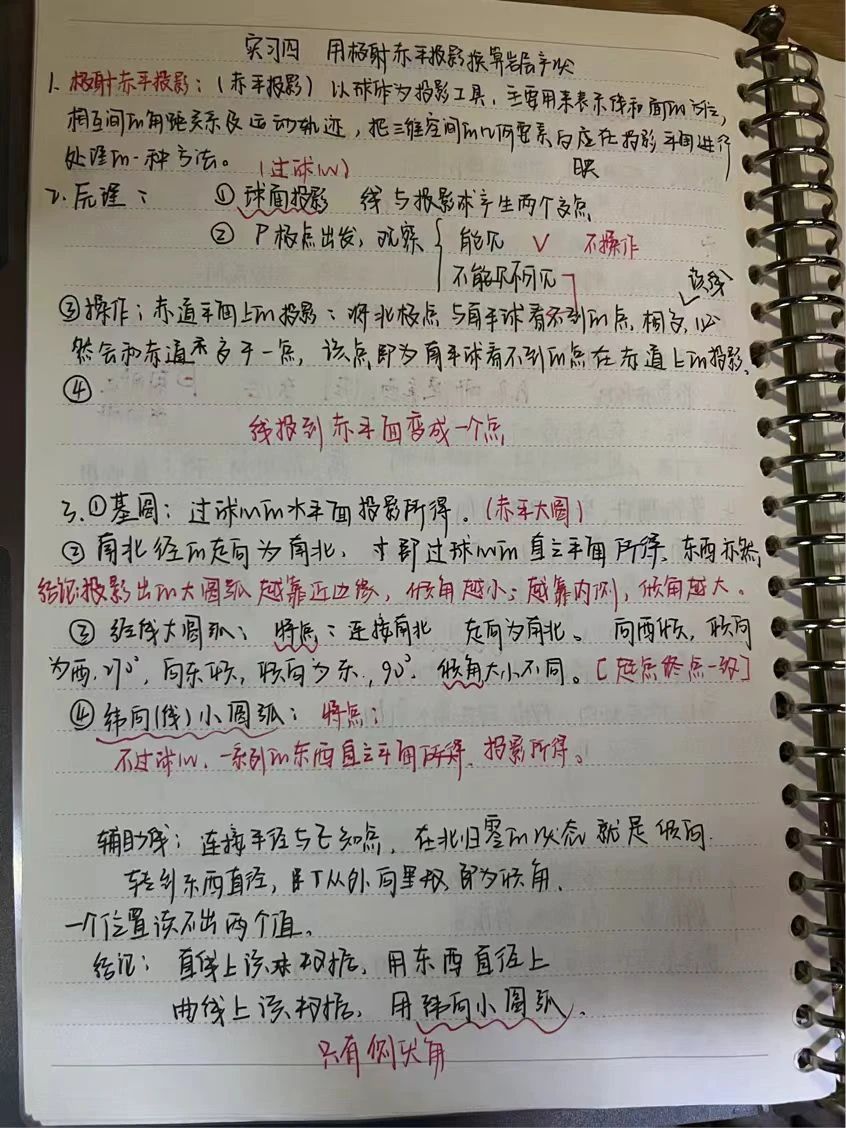 实习四 用极射赤平投影换算岩层产状
1. 极射赤平投影：(赤平投影) 以球作为投影工具，主要用来表示线和面的方位，
相互间的角距关系及运动轨迹，把三维空间的几何要素反应在投影平面进行
处理的一种方法。 (过球心) 映
2. 原理： ① 球面投影 线与投影球产生两个交点
② P极点出发，观察 { 能见 √ 不操作
不能见不可见 该线
③操作：赤道平面上的投影：将北极点与南半球看不到的点，相交，必
然会和赤道平交于一点，该点即为南半球看不到的点在赤道上的投影。
④
线投到赤平面变成一个点
3. ①基圆：过球心的水平面投影所得。(赤平大圆)
② 南北径的走向为南北，寸部过球心的直立平面所得，东西亦然
结论：投影出的大圆弧越靠近边缘，倾角越小；越靠内侧，倾角越大。
③ 经线大圆弧：特点：连接南北 走向为南北。 向西倾，倾向
为西，270°，向东倾，倾向为东，90°。 倾角大小不同。[起点终点一致]
④ 纬向(线)小圆弧：特点：
不过球心，一系列的东西直立平面所得，投影所得。
辅助线：连接半径与已知点，在北归零的状态就是倾向.
转到东西直径，由下从外向里数即为倾角.
一个位置读不出两个值。
结论：直线上读取数据，用东西直径上
曲线上读数据，用纬向小圆弧。
只有侧伏角